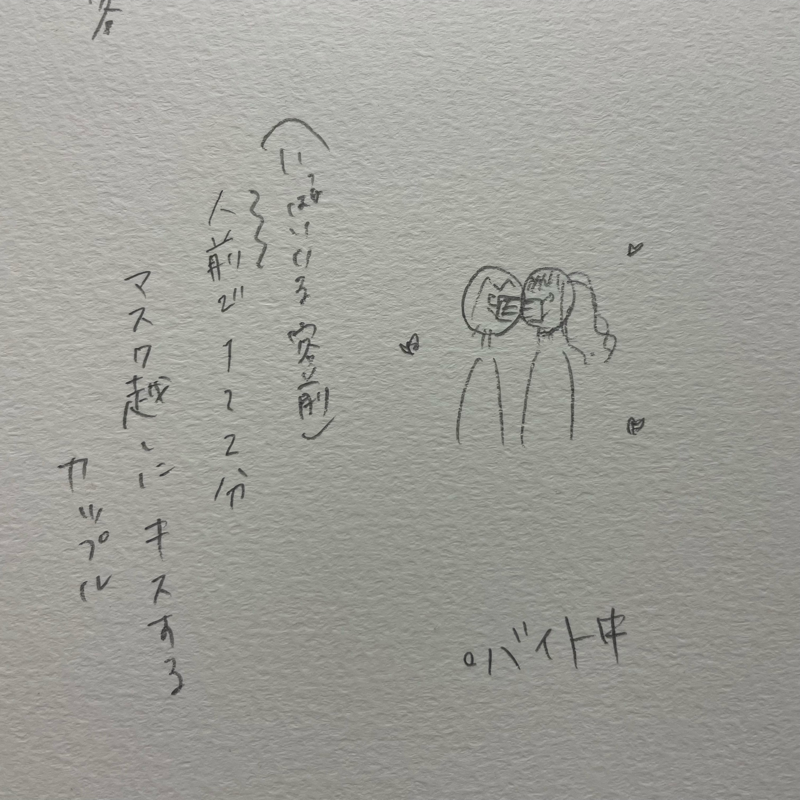 (いっぱいいる客前)
人前で1〜2分
マスク越しにキスする
カップル
バイト中